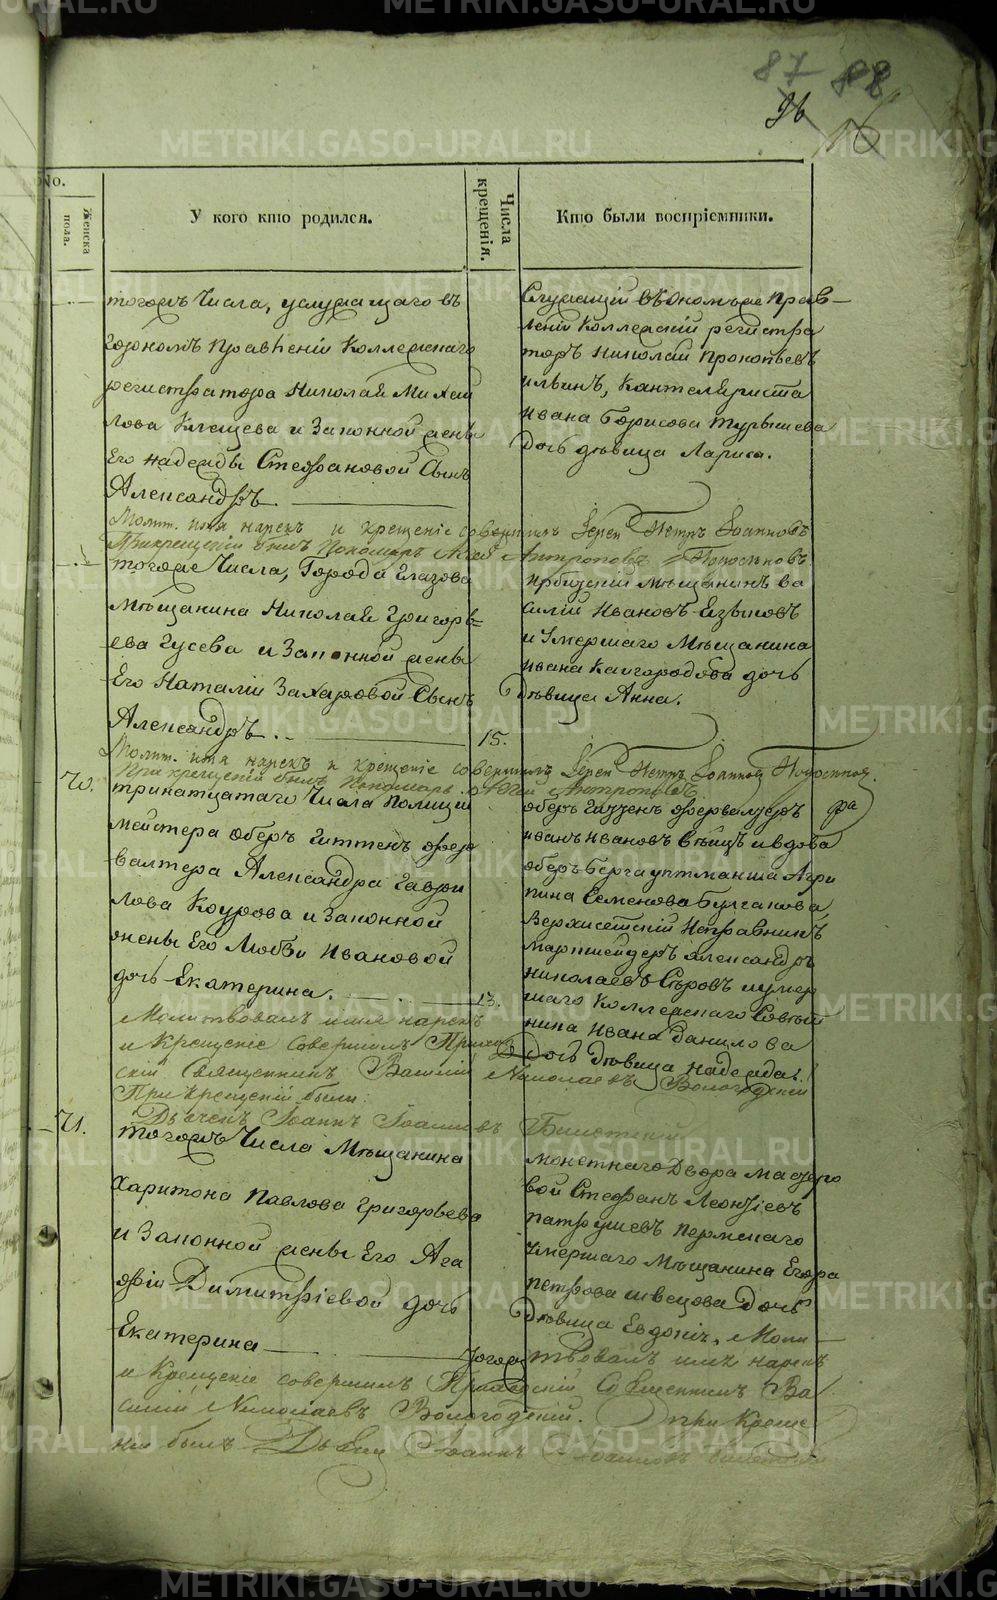 METRIKI.GASO-URAL.RU
87 88
96
Женска пола.
У кого кто родился.
Числа крещенія.
Кто были воспріємники.
тогожъ Числа, услужащаго въ
горномъ Правленіи Коллежскаго
регистратора Николая Михай
лова Клещева и Законной жены
Его надежды Стефановой Сынъ
Александръ
Служащій въ ономъже Прав—
леніи Коллежскій регистра
торъ Николай Прокопьевъ
ильинъ, Канцеляриста
Ивана Борисова Турышева
дочь дѣвица Лариса.
Молит. имя нарекъ и крещеніе совершилъ Іерей Петръ Іоанновъ
При крещеніи былъ Пономарь Антроповъ
тогоже Числа, Города Глазова
Мѣщанина Николая Григорь-
ева Гусева и Законной жены
Его Наталіи Захаровой Сынъ
Александръ.
15.
Ирбитскій мѣщанинъ ва
силій Ивановъ Языковъ
и Умершаго Мѣщанина
Ивана Кайгородова дочь
дѣвица Анна.
Молит. имя нарекъ и крещеніе совершилъ Іерей Петръ Іоанновъ
При крещеніи былъ Пономарь Антроповъ
70.
тринатцатаго Числа Полицій
мейстера Оберъ Гиттенъ фер
валтера Александра Гаври
лова Коурова и Законной
жены Его Любви Ивановой
дочь Екатерина.
13.
оберъ Гиттенъ ферваltеръ
Иванъ Ивановъ Вейцъ и вдова
оберъ Бергауптманша Агри
пина Семенова Булгакова,
Верхисетскій Исправникъ
Маркшейдеръ Александръ
Николаевъ Сѣровъ и умер
шаго Коллежскаго Совѣт
ника Ивана Данилова
Дочь Дѣвица Надежда.
Молитвовалъ имя нарекъ
и Крещеніе совершилъ Приход
скій Священникъ Василій Николаевъ Вологодскій
При Крещеніи были:
Дьячекъ Іоаннъ Іоанновъ
71.
тогожъ Числа Мѣщанина
Харитона Павлова Григорьева
и Законной жены Его Ага
фіи Димитріевой дочь
Екатерина
тогожъ
монетнаго Двора мастеро
вой Стефанъ Леонтіевъ
патрушевъ Пермскаго
Умершаго Мѣщанина Егора
петрова швецова Дочь
Дѣвица Евдокія, Моли—
твовалъ имя нарекъ
и Крещеніе совершилъ Приходскій Священникъ Ва
силій Николаевъ Вологодскій. При Креще
ніи былъ Іоаннъ